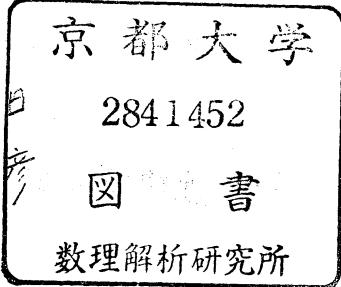 京都大学
2841452
図書
数理解析研究所